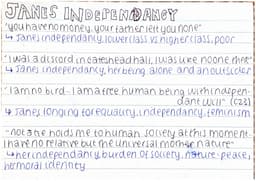 JANES INDEPENDANCY
"you have no money, your father left you none"
↳ Janes independancy, lower class vs higher class, poor
"I was a discord in Gateshead hall, I was like noone there"
↳ Janes independancy, her being alone and an outsider
"I am no bird - I am a free human being with indepen-
dant will" (C23)
↳ Janes longing for equality, independancy, feminism
"not a tie holds me to human society at this moment -
I have no relative but the universal mother nature"
↳ her independancy, burden of society, nature - peace,
her moral identity